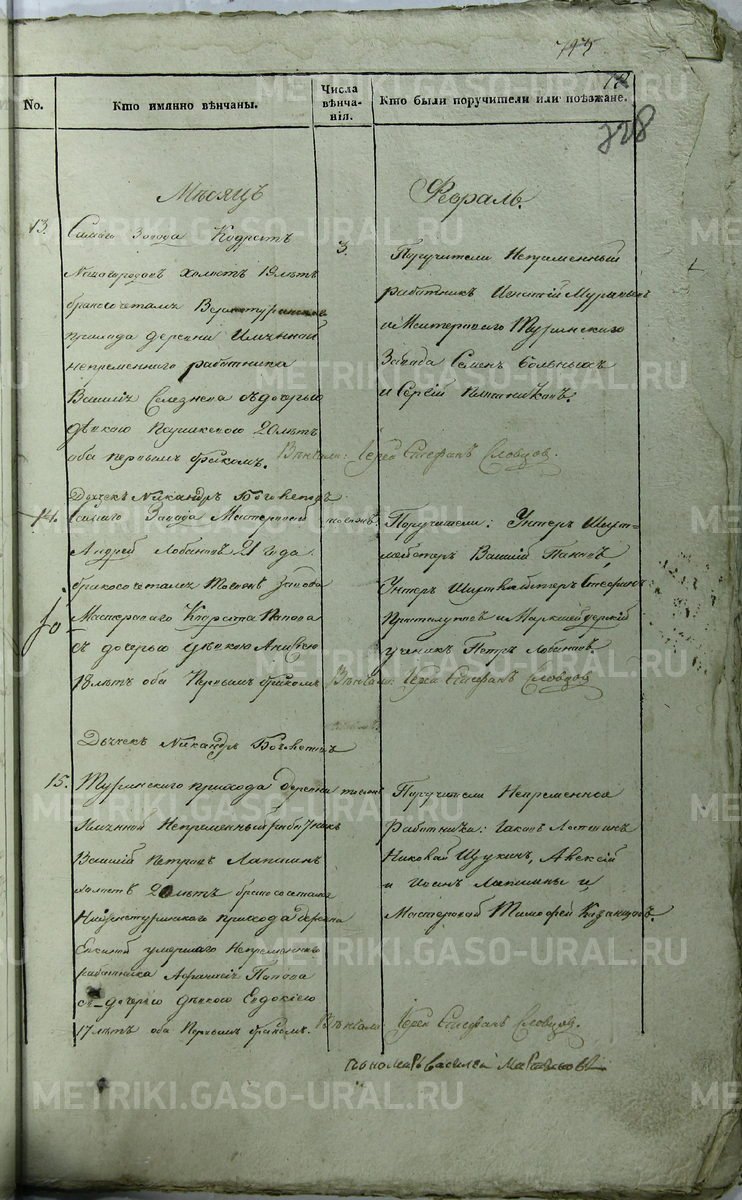 745
728
No.
Кто имянно вѣнчаны.
Числа
вѣнча-
нія.
Кто были поручители или поѣзжане.
Мѣсяцъ
Февраль.
13.
Самаго Завода
холостъ 19 лѣтъ
бракосочетался Верхотуринскаго
прихода деревни
непременнаго работника
Василія Селезнева съ дочерью
девкою 20 лѣтъ
оба первымъ бракомъ.
3.
Поручители Непременный
работникъ
и Мастероваго Туринскаго
Завода Семенъ Больныхъ
и Сергѣй
Венчалъ: Іерей Стефанъ Словцов.
Дьячекъ Никандръ
14.
самаго Завода Мастеровой
Андрей Лобановъ 21 года
бракосочетался тогожъ завода
Мастероваго Кодрата Попова
съ дочерью девкою Анисьею
18 лѣтъ оба первымъ бракомъ
тогожъ.
Поручители: Унтеръ Шихт-
мейстеръ Василій Поповъ
Унтеръ Шихтмейстеръ Стефанъ
и Маркшейдерскій
ученикъ Петръ Лобановъ.
Венчалъ Іерей Стефанъ Словцов
Дьячекъ Никандръ
15.
Туринскаго прихода деревни
Непременный работникъ
Василій Петровъ Лапшинъ
холостъ 20 лѣтъ бракосочетался
Нижнетуринскаго прихода деревни
умершаго Непременнаго
работника Афанасія Попова
съ дочерью девкою Евдокіею
17 лѣтъ оба первымъ бракомъ.
тогожъ
Поручители Непременные
работники: Іаковъ Лапшинъ
Николай Щукинъ, Алексѣй
и Іосифъ Лапшины и
Мастеровой Тимофей Казанцовъ.
Венчалъ Іерей Стефанъ Словцов.
пономарь Василей
METRIKI.GASO-URAL.RU